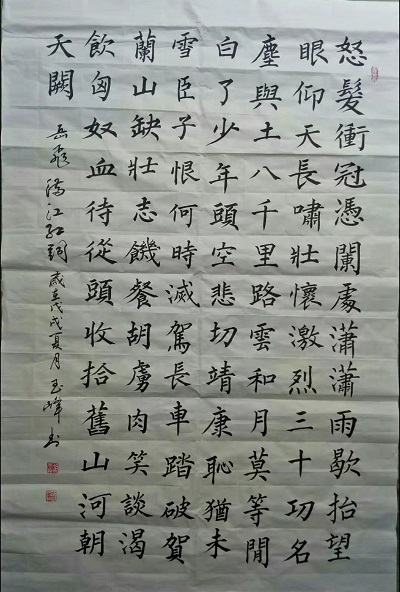 怒髮衝冠憑闌處瀟瀟雨歇抬望
眼仰天長嘯壯懷激烈三十功名
塵與土八千里路雲和月莫等閒
白了少年頭空悲切靖康恥猶未
雪臣子恨何時滅駕長車踏破賀
蘭山缺壯志饑餐胡虜肉笑談渴
飲匈奴血待從頭收拾舊山河朝
天闕
岳飛滿江紅詞歲在戊戌夏月玉峰书